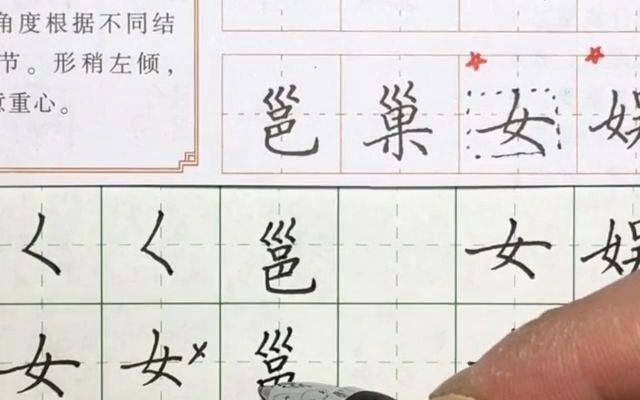 角度根据不同结
节。形稍左倾，
重心。
邕 巢 女 娱
く く 邕 女 娱
女 女 × 邕